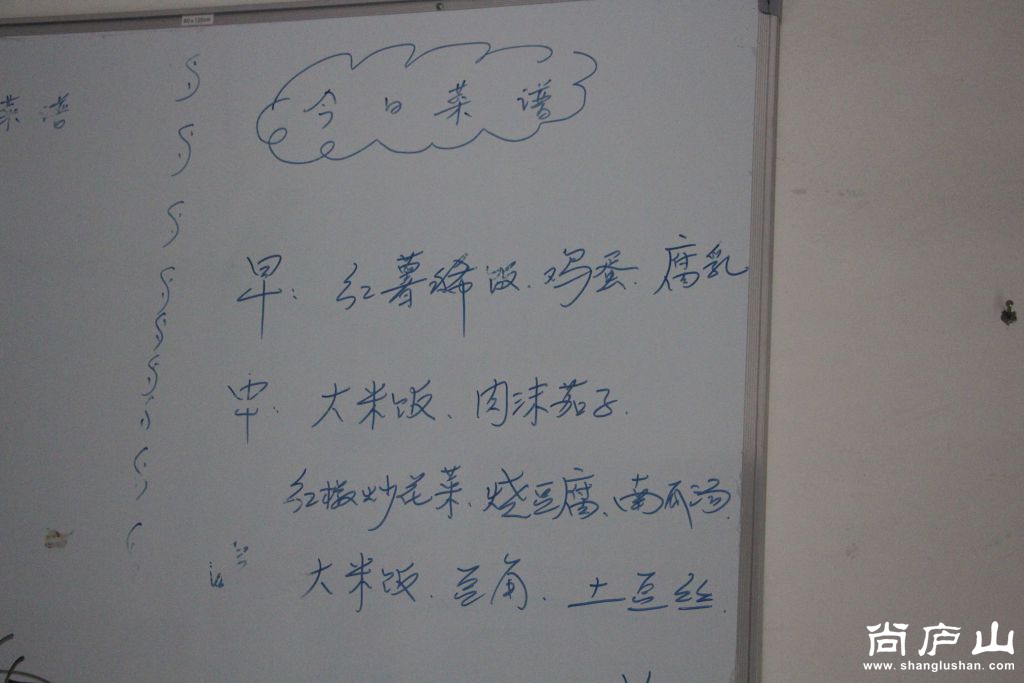 60x120cm
菜谱
今日菜谱
早: 红薯稀饭、鸡蛋、腐乳
中: 大米饭、肉沫茄子.
红椒炒花菜、烧豆腐、南瓜汤.
大米饭、豆角、土豆丝.
尚庐山
www.shanglushan.com